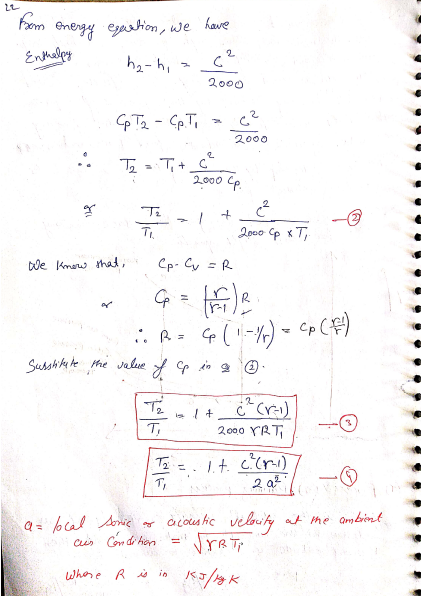 22
From energy equation, we have
Enthalpy h₂ - h₁ = C²/2000
CpT₂ - CpT₁ = C²/2000
∴ T₂ = T₁ + C²/2000 Cp
or T₂/T₁ = 1 + C²/2000 Cp × T₁ —②
We know that, Cp - Cv = R
or Cp = (γ/γ-1) R
∴ R = Cp (1 - 1/γ) = Cp (γ-1/γ)
Substitute the value of Cp in ②.
T₂/T₁ = 1 + C²(γ-1)/2000 γRT₁ —③
T₂/T₁ = 1 + C²(γ-1)/2 a² —④
a = local sonic or acoustic velocity at the ambient
air condition = √γRT₁
Where R is in KJ/kg K